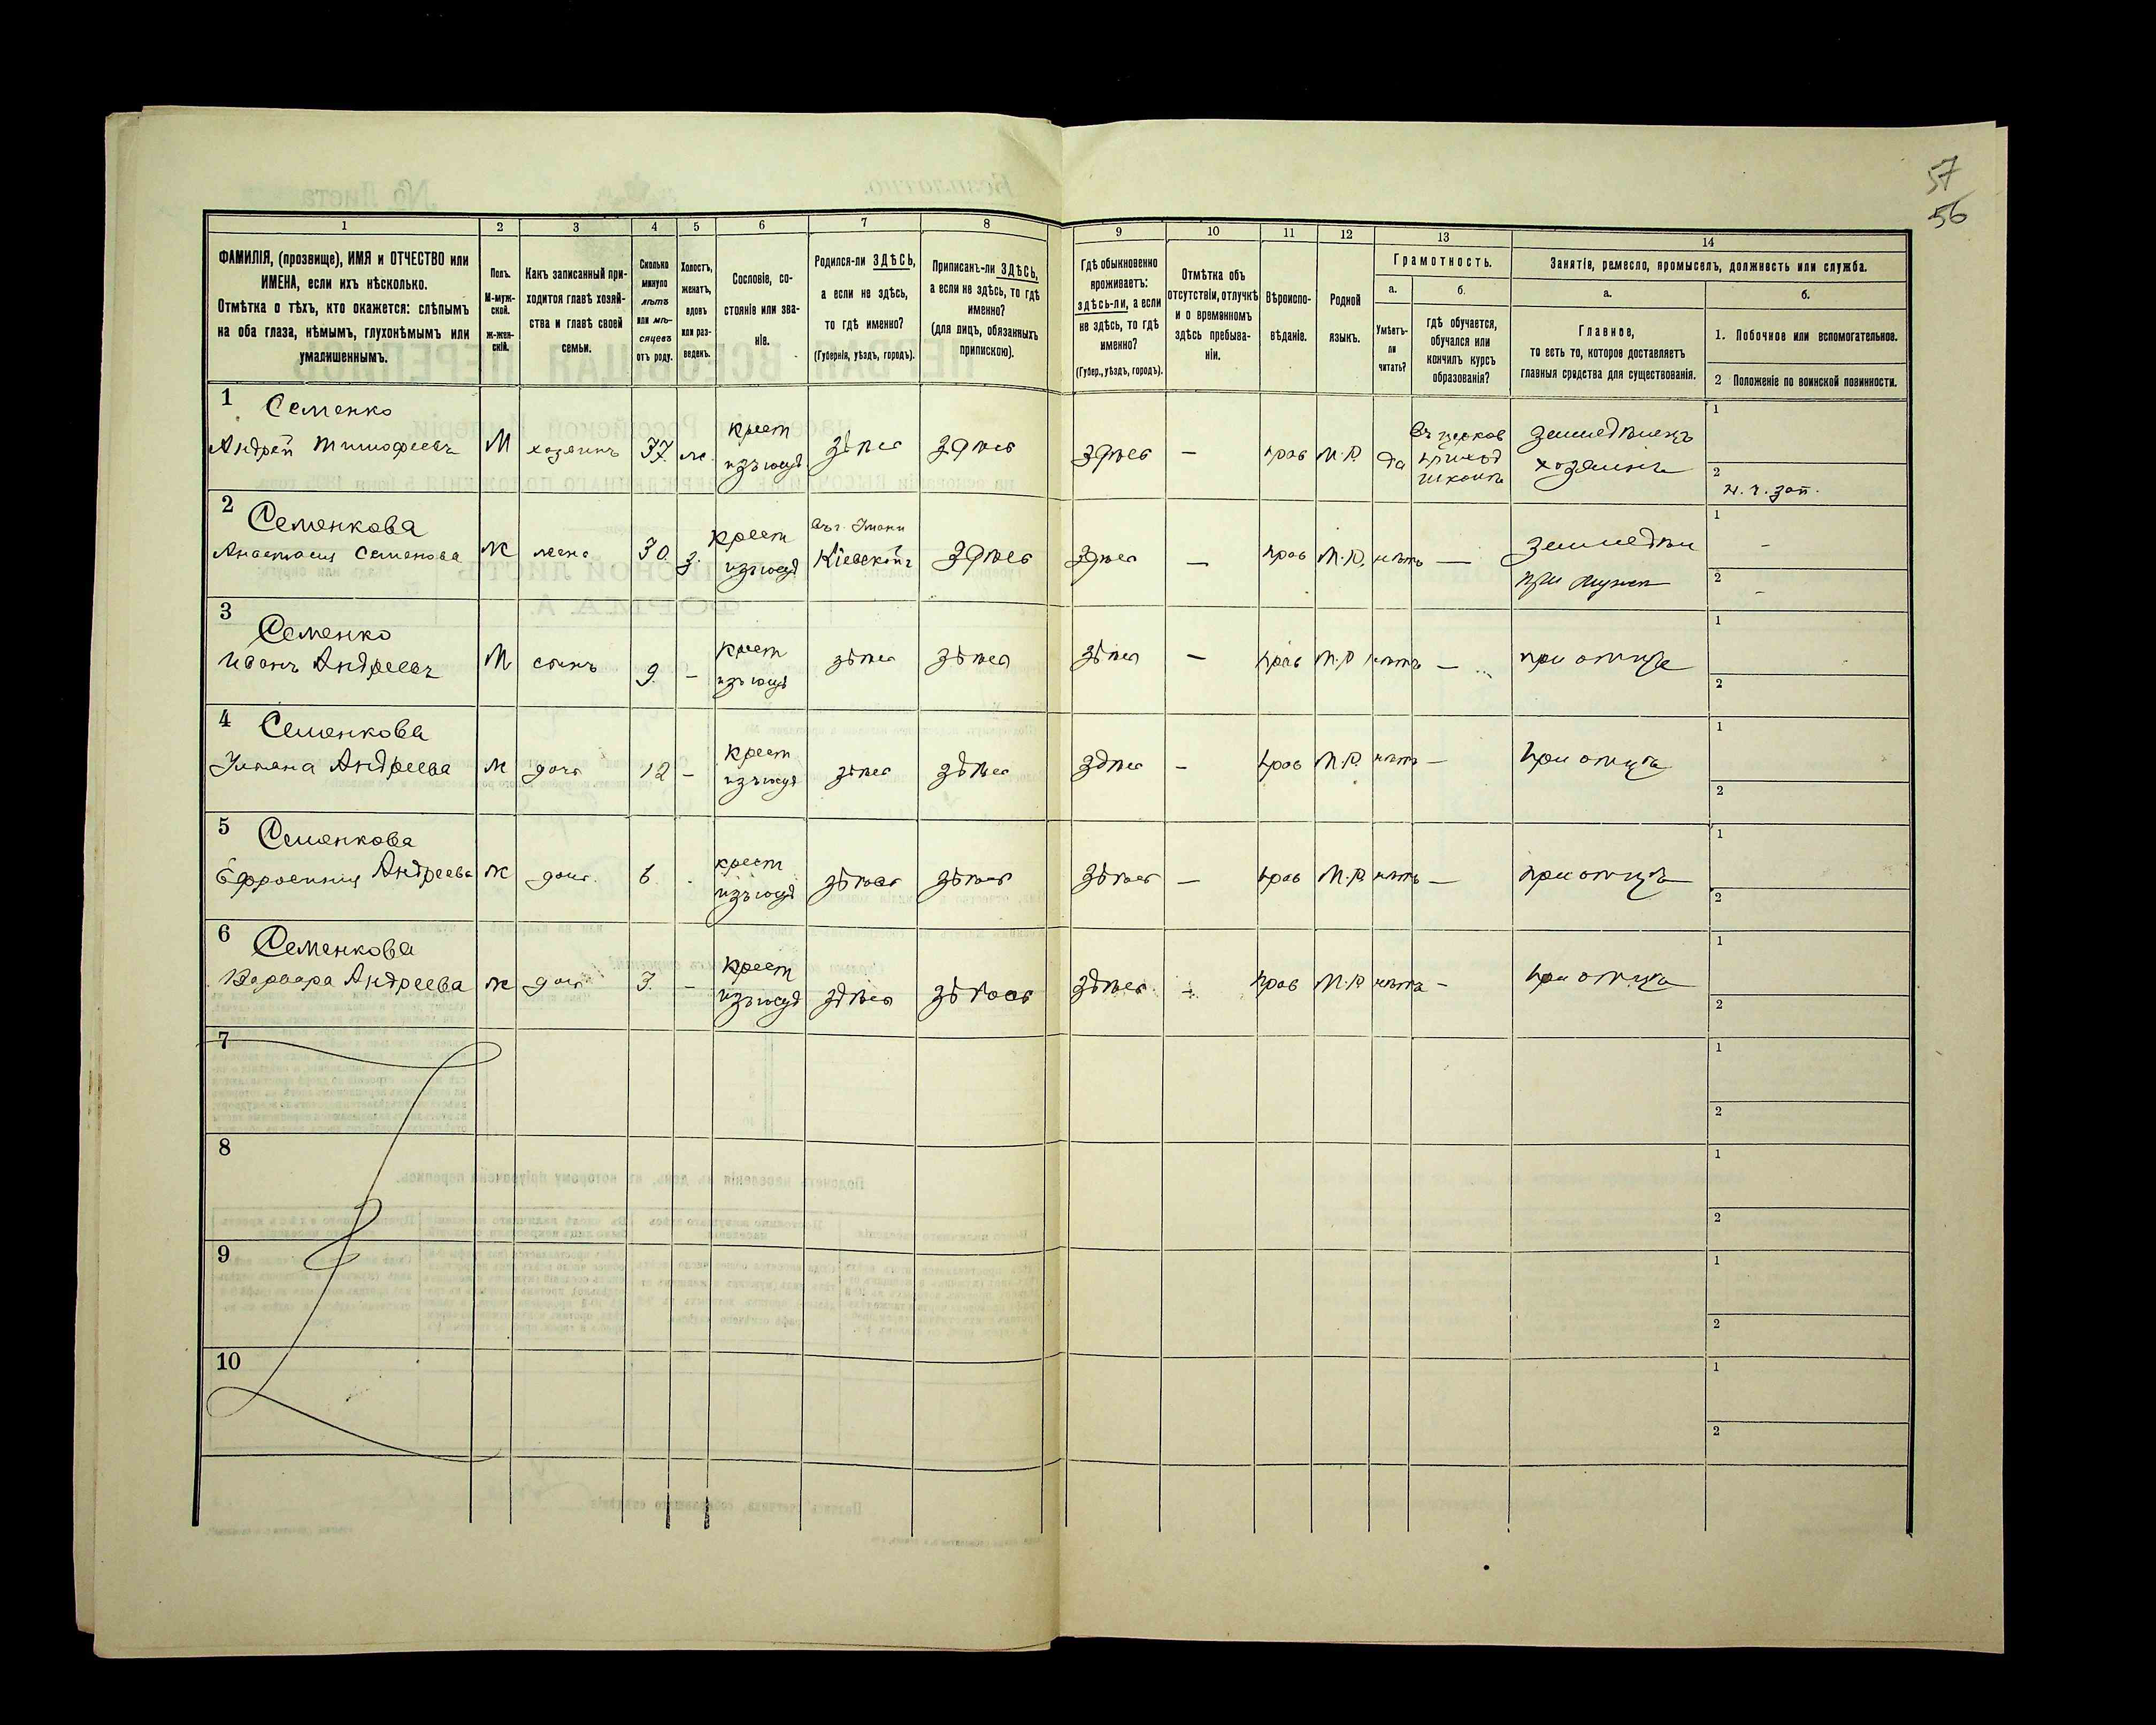 57
56
1
2
3
4
5
6
7
8
9
10
11
12
13
14
ФАМИЛІЯ, (прозвище), ИМЯ и ОТЧЕСТВО или
ИМЕНА, если ихъ нѣсколько.
Отмѣтка о тѣхъ, кто окажется: слѣпымъ
на оба глаза, нѣмымъ, глухонѣмымъ или
умалишеннымъ.
Полъ.
М-муж-
ской.
ж-жен-
скій.
Какъ записанный при-
ходится главѣ хозяй-
ства и главѣ своей
семьи.
Сколько
минуло
лѣтъ
или мѣ-
сяцевъ
отъ роду.
Холостъ,
женатъ,
вдовъ
или раз-
веденъ.
Сословіе, со-
стояніе или зва-
ніе.
Родился-ли ЗДѢСЬ,
а если не здѣсь,
то гдѣ именно?
(Губернія, уѣздъ, городъ).
Приписанъ-ли ЗДѢСЬ,
а если не здѣсь, то гдѣ
именно?
(для лицъ, обязанныхъ
припискою).
Гдѣ обыкновенно
проживаетъ:
здѣсь-ли, а если
не здѣсь, то гдѣ
именно?
(Губер., уѣздъ, городъ).
Отмѣтка объ
отсутствіи, отлучкѣ
и о временномъ
здѣсь пребыва-
ніи.
Вѣроиспо-
вѣданіе.
Родной
языкъ.
Грамотность.
а.
Умѣетъ-
ли
читать?
б.
гдѣ обучается,
обучался или
кончилъ курсъ
образованія?
Занятіе, ремесло, промыселъ, должность или служба.
а.
Главное,
то есть то, которое доставляетъ
главныя средства для существованія.
б.
1. Побочное или вспомогательное.
2 Положеніе по воинской повинности.
1 Семенко
Андрей Тимофеевъ М хозяинъ 37 ж. крест изъ юсуд здѣсь здѣсь здѣсь — прав М.Р. да
Въ церков
приход
школѣ
земледѣлецъ
хозяинъ
1
2 н. ч. зап.
2 Семенкова
Анастасия Семенова ж жена 30 з. крест
Кіевской здѣсь здѣсь — прав М.Р. нѣтъ —
земледѣл
при мужѣ
1 -
2 -
3 Семенко
Иванъ Андреевъ М сынъ 9 - крест здѣсь здѣсь здѣсь — прав М.Р нѣтъ — при отцѣ
1
2
4 Семенкова
Андреева ж дочь 12 - крест здѣсь здѣсь здѣсь — прав М.Р. нѣтъ — при отцѣ
1
2
5 Семенкова
Ефросиния Андреева ж дочь 6 - крест здѣсь здѣсь здѣсь — прав М.Р. нѣтъ — при отцѣ
1
2
6 Семенкова
Варвара Андреева ж дочь 3. - крест здѣсь здѣсь здѣсь - прав М.Р нѣтъ - при отцѣ
1
2
7
1
2
8
1
2
9
1
2
10
1
2